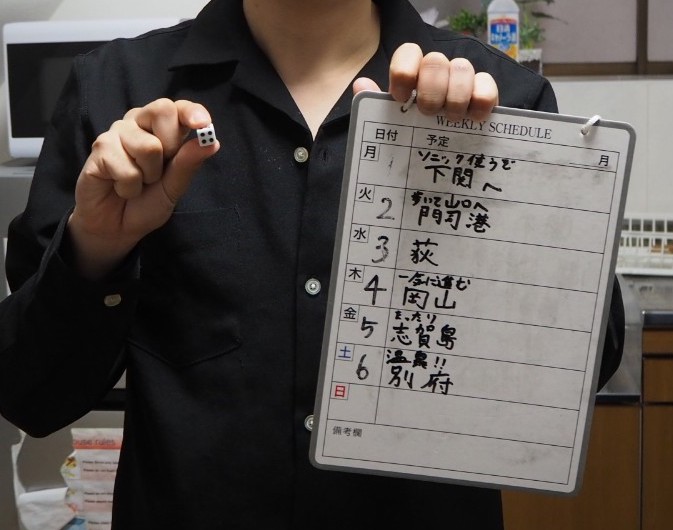 WEEKLY SCHEDULE
日付 予定 月
月 1 ソニック使うぞ
下関へ
火 2 歩いて山口へ
門司港
水 3 萩
木 4 一気に進む
岡山
金 5 まったり
志賀島
土 6 温泉!!
別府
日
備考欄